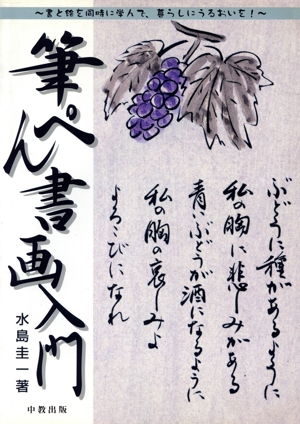 ～書と絵を同時に学んで、暮らしにうるおいを！～
筆ぺん書画入門
水島圭一著
中教出版
ぶどうに種があるように
私の胸に悲しみがある
青いぶどうが酒になるように
私の胸の哀しみよ
よろこびになれ